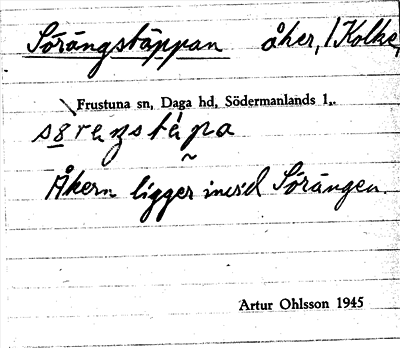 Sörängstäppan åker, 1 Kolke,
Frustuna sn, Daga hd, Södermanlands l,.
Åkern ligger invid Sörängen.
Artur Ohlsson 1945